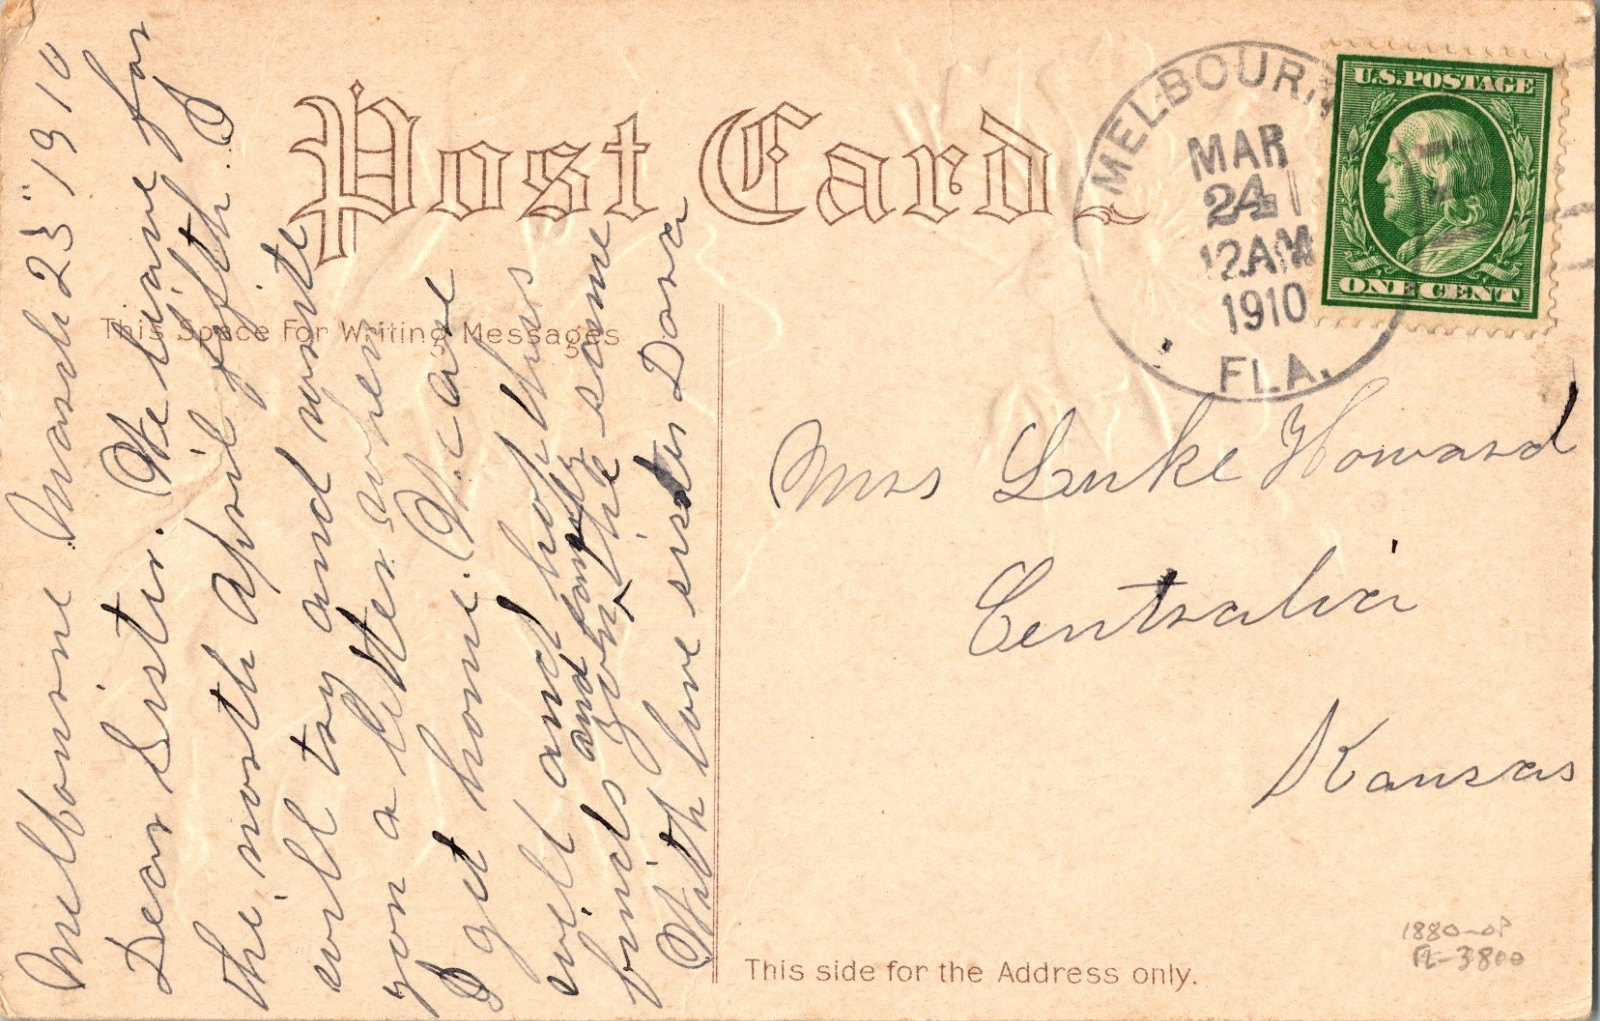 Post Card
This Space For Writing Messages
Melbourne March 23" 1910
Dear Sister. We leave for
the north april fifth. I
will try and write
you a letter when
I get home. We are
well and hop this
finds you the same
and family
With love sister Dora
MELBOURN
MAR
24
12AM
1910
FLA.
U.S. POSTAGE
ONE CENT
Mrs Luke Howard
Centralia
Kansas
This side for the Address only.
1880-OP
FL-3800